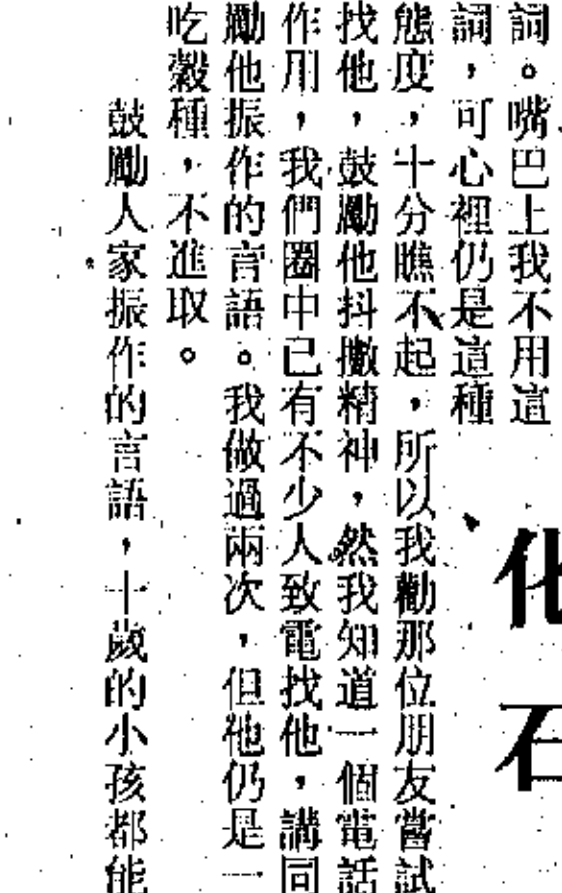 詞。嘴巴上我不用這
詞，可心裡仍是這種
態度，十分瞧不起，所以我勸那位朋友嘗試
找他，鼓勵他抖擻精神，然我知道一個電話
作用，我們圈中已有不少人致電找他，講同
勵他振作的言語。我做過兩次，但他仍是一
吃穀種，不進取。
鼓勵人家振作的言語，十歲的小孩都能
化石